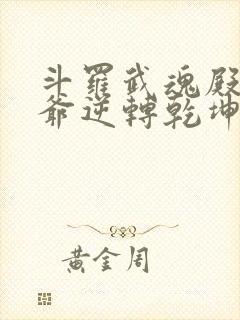 斗羅武魂殿
爺逆轉乾坤
黃金周